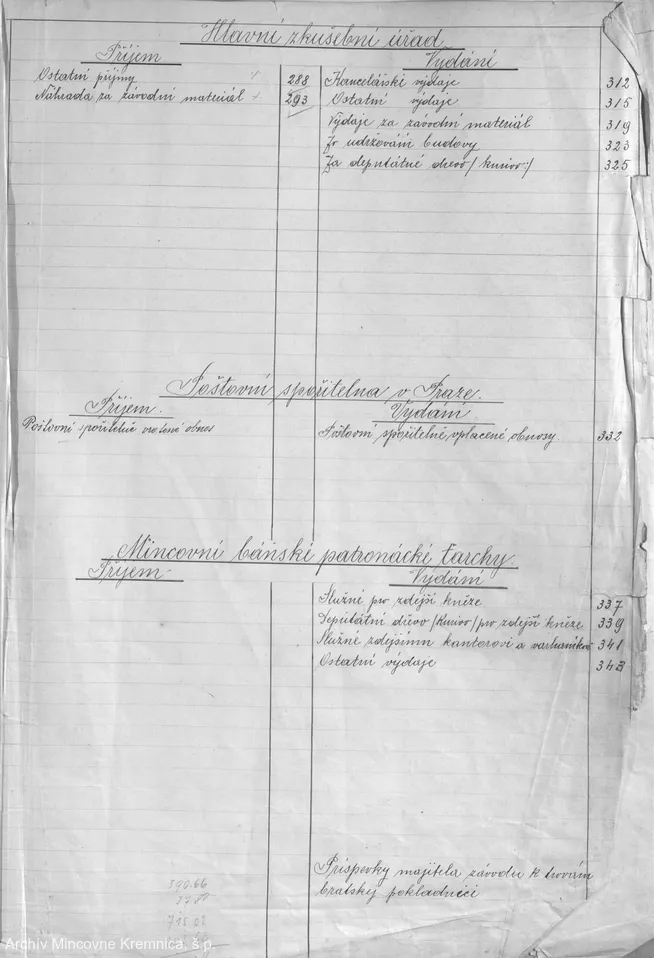 Hlavní zkušební úřad
Příjem
Vydání
Ostatní příjmy + 288
Náhrada za závodní materiál + 293
Kancelářské výdaje 312
Ostatní výdaje 315
Výdaje za závodní materiál 319
Za udržování budovy 323
Za deputátné dřevo /kuniov:/ 325
Poštovní spořitelna v Praze.
Příjem.
Vydání
Poštovní spořitelně vrácené obnos
Poštovní spořitelně vplacené obnosy. 332
Mincovní báňské patronácké ťarchy.
Příjem
Vydání
Služné pro zdejší kněze 337
Deputátní dřevo /kuniov/ pro zdejší kněze 339
Služné zdejšímu kantorovi a varhaníkovi 341
Ostatní výdaje 343
Príspevky majitela závodu k trovám
bratskej pokladnici
590.66
715.02
Archív Mincovne Kremnica, š.p.